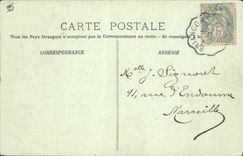 CARTE POSTALE
Tous les Pays étrangers n'acceptent pas la Correspondance au recto. - Se renseigner
CORRESPONDANCE
ADRESSE
Melle J. Signoret
41, rue d'Endoume
Marseille